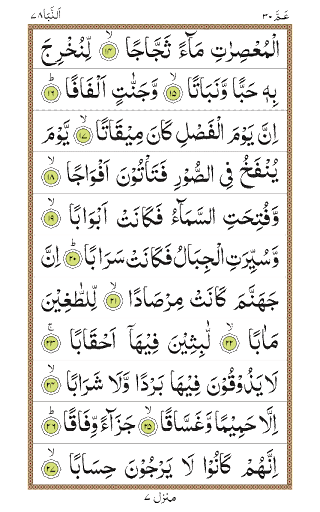 عَمَّ ٣٠ اَلنَّبَا ٧٨
الْمُعْصِرٰتِ مَآءً ثَجَّاجًا ۙ‏﴿۱۴﴾ لِّنُخْرِجَ
بِهٖ حَبًّا وَّنَبَاتًا ۙ‏﴿۱۵﴾ وَّجَنّٰتٍ اَلْفَافًا ؕ‏﴿۱۶﴾
اِنَّ يَوْمَ الْفَصْلِ كَانَ مِيْقَاتًا ۙ‏﴿۱۷﴾ يَّوْمَ
يُنْفَخُ فِى الصُّوْرِ فَتَاْتُوْنَ اَفْوَاجًا ۙ‏﴿۱۸﴾
وَّفُتِحَتِ السَّمَآءُ فَكَانَتْ اَبْوَابًا ۙ‏﴿۱۹﴾
وَّسُيِّرَتِ الْجِبَالُ فَكَانَتْ سَرَابًا ؕ‏﴿۲۰﴾ اِنَّ
جَهَنَّمَ كَانَتْ مِرْصَادًا ۙ‏﴿۲۱﴾ لِّلطّٰغِيْنَ
مَاٰبًا ۙ‏﴿۲۲﴾ لّٰبِثِيْنَ فِيْهَاۤ اَحْقَابًا ۚ‏﴿۲۳﴾
لَا يَذُوْقُوْنَ فِيْهَا بَرْدًا وَّلَا شَرَابًا ۙ‏﴿۲۴﴾
اِلَّا حَمِيْمًا وَّغَسَّاقًا ۙ‏﴿۲۵﴾ جَزَآءً وِّفَاقًا ؕ‏﴿۲۶﴾
اِنَّهُمْ كَانُوْا لَا يَرْجُوْنَ حِسَابًا ۙ‏﴿۲۷﴾
منزل ٧